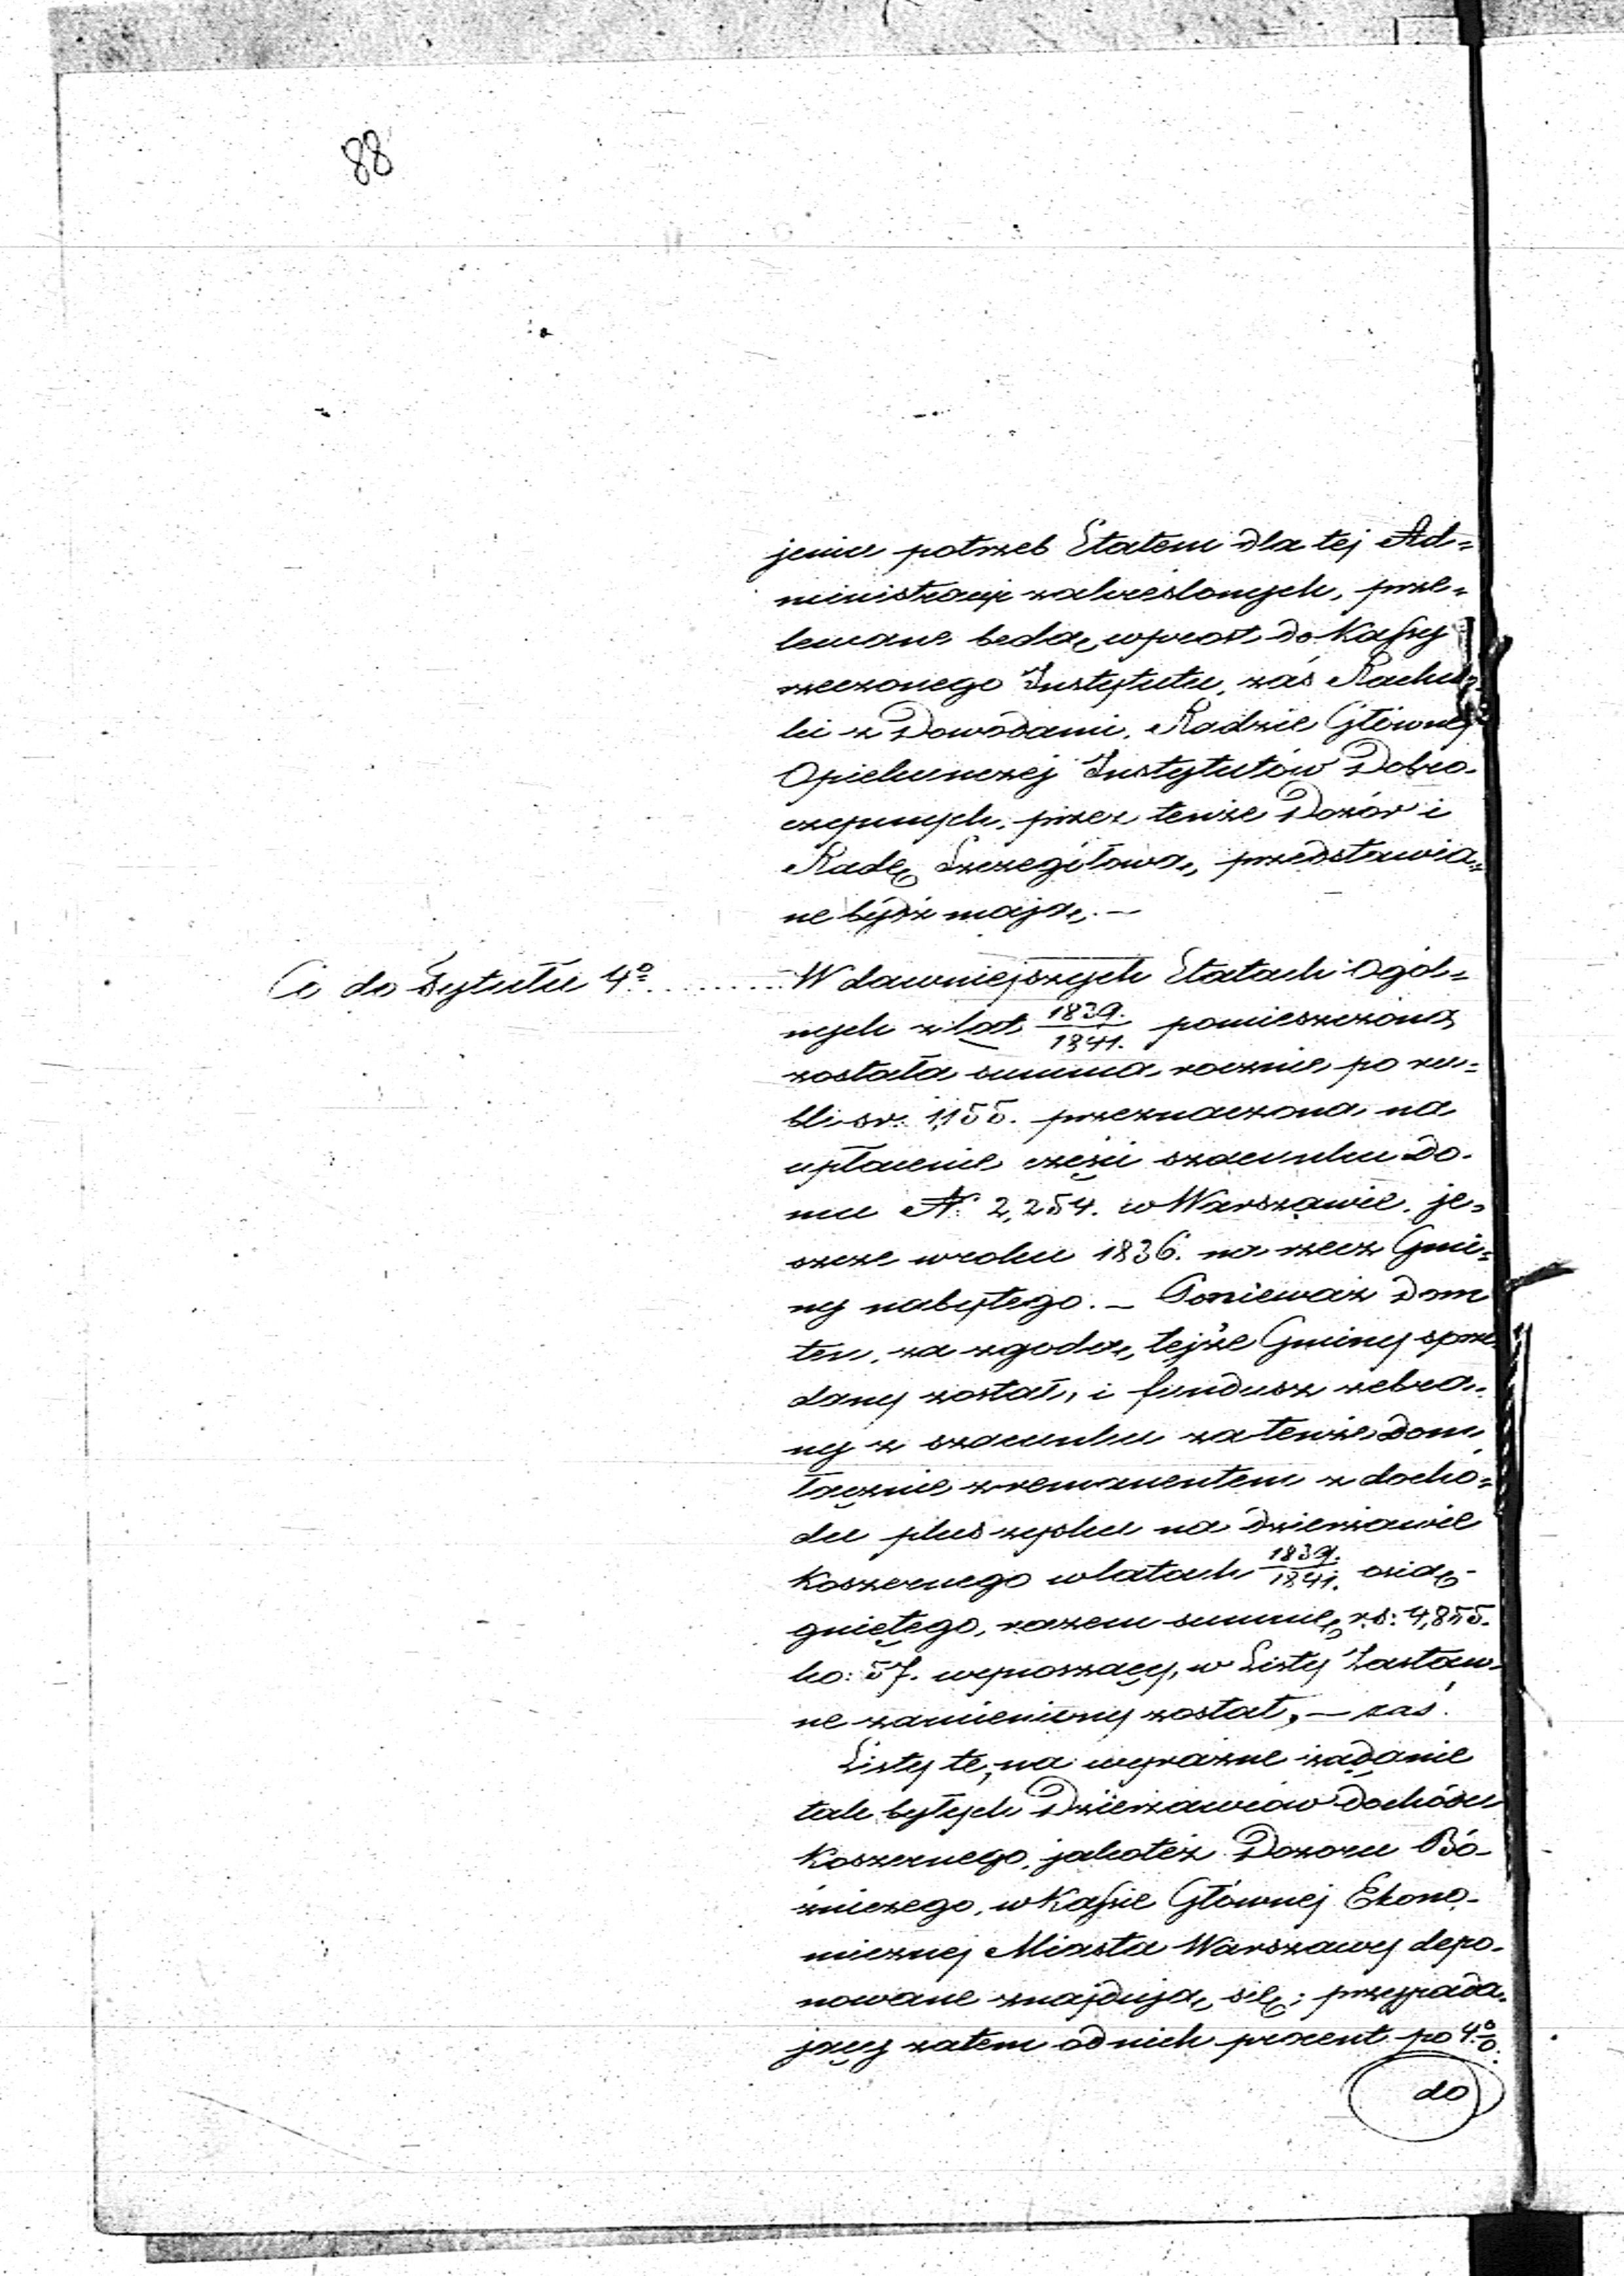 88
jenie potrzeb Etatem dla tej Ad=
ministracyi zakreślonych, prze=
lewane będą, wprost do Kassy
rzeczonego Instytutu, zaś Rachun=
ki z Dowodami, Radzie Głównej
Opiekunczej Instytutów Dobro-
czynnych, przez tenże Dozór i
Radę Szczegółową, przedstawia=
ne bydź mają.—
Co do Tytułu 4º ......... W dawniejszych Etatach Ogól=
nych z lat 1839./1841. pomieszczoną
została summa rocznie po ru=
bli sr: 1,155. przeznaczona na
upłacenie części szacunku Do-
mu N. 2,254. w Warszawie, je=
szcze w roku 1836. na rzecz Gmi=
ny nabytego. — Ponieważ Dom
ten, za zgodą, tejże Gminy sprze
dany został, i fundusz zebra=
ny z szacunku za tenże Dom,
łącznie z remanentem z docho=
du plus zysku na dzierżawie
Koszernego w latach 1839./1841. osią-
gniętego, razem summę r.s: 4,855.
ko: 57. wynoszący, w Listy Zastaw=
ne zamieniony został, — zaś
Listy te, na wyraźne żądanie
tak byłych Dzierżawców dochodu
Koszernego, jakoteż Dozoru Bó-
źniczego, w Kassie Głównej Ekono-
micznej Miasta Warszawy depo-
nowane znajdują się; przypada-
jący zatem od nich procent po 4.%
do